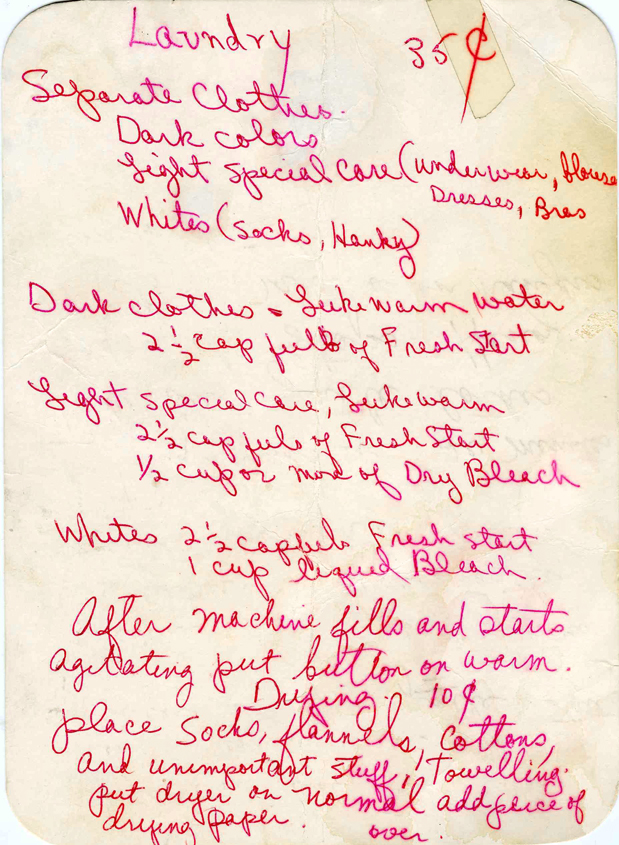 Laundry 35¢
Separate Clothes.
Dark colors
Light special care (underwear, blouse
Dresses, Bras
Whites (Socks, Hanky)
Dark clothes - Lukewarm water
2 1/2 cap fulls of Fresh Start
Light special care, Lukewarm
2 1/2 cap fuls of Fresh Start
1/2 cup or more of Dry Bleach
Whites 2 1/2 capfuls Fresh start
1 cup liquid Bleach.
After machine fills and starts
agitating put button on warm.
Drying. 10¢
place Socks, flannels, Cottons,
and unimportant stuff, Towelling.
put dryer on normal add peice of
drying paper. over.